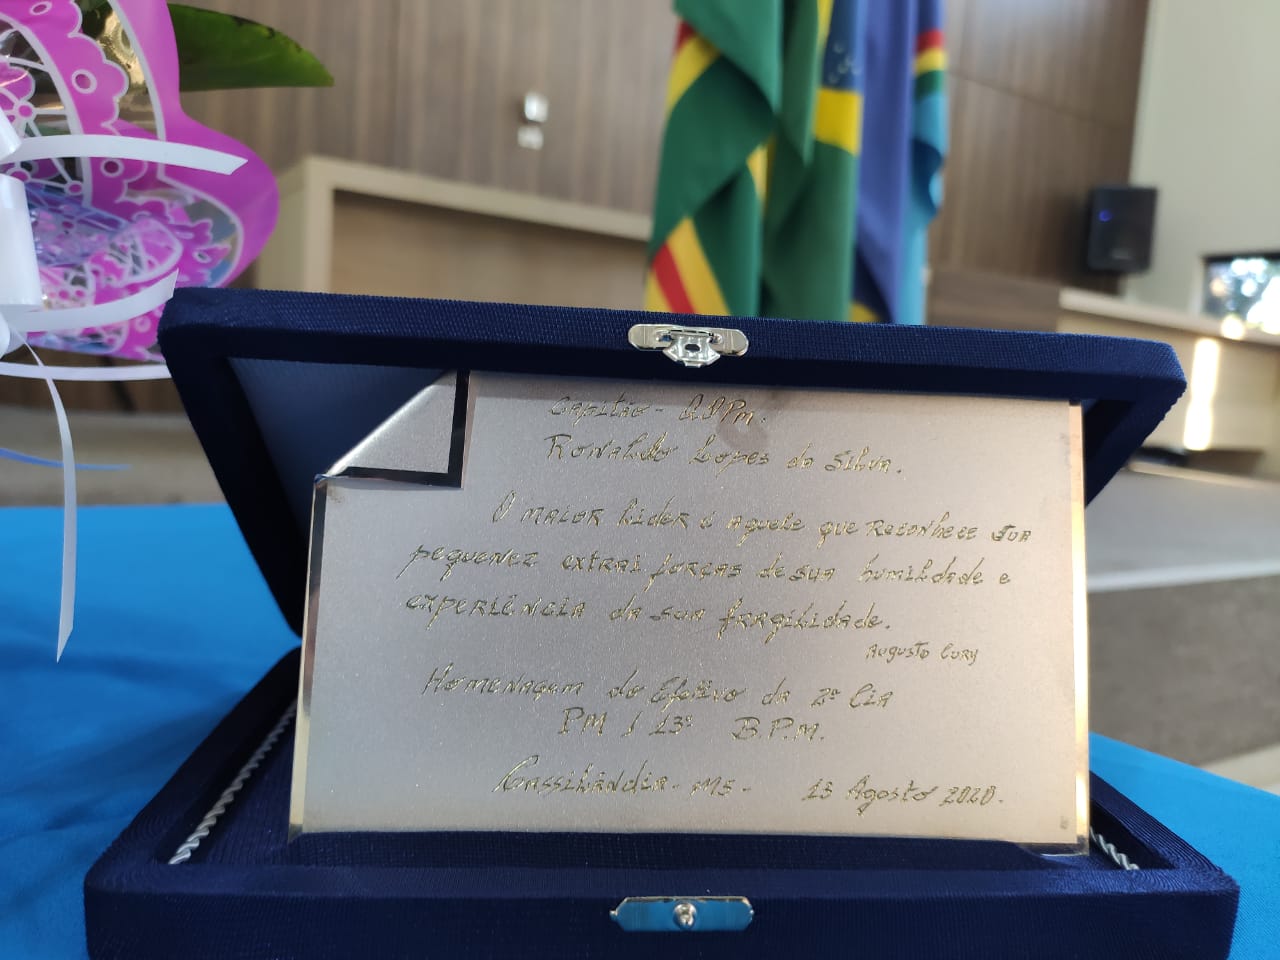 Capitão - QOPM.
Ronaldo Lopes da Silva.
O maior lider é aquele que reconhece sua
pequenez extrai forças de sua humildade e
experiência da sua fragilidade.
Augusto Cury
Homenagem do Efetivo da 2ª Cia
PM / 13º B.P.M.
Cassilândia - MS - 13 Agosto 2020.